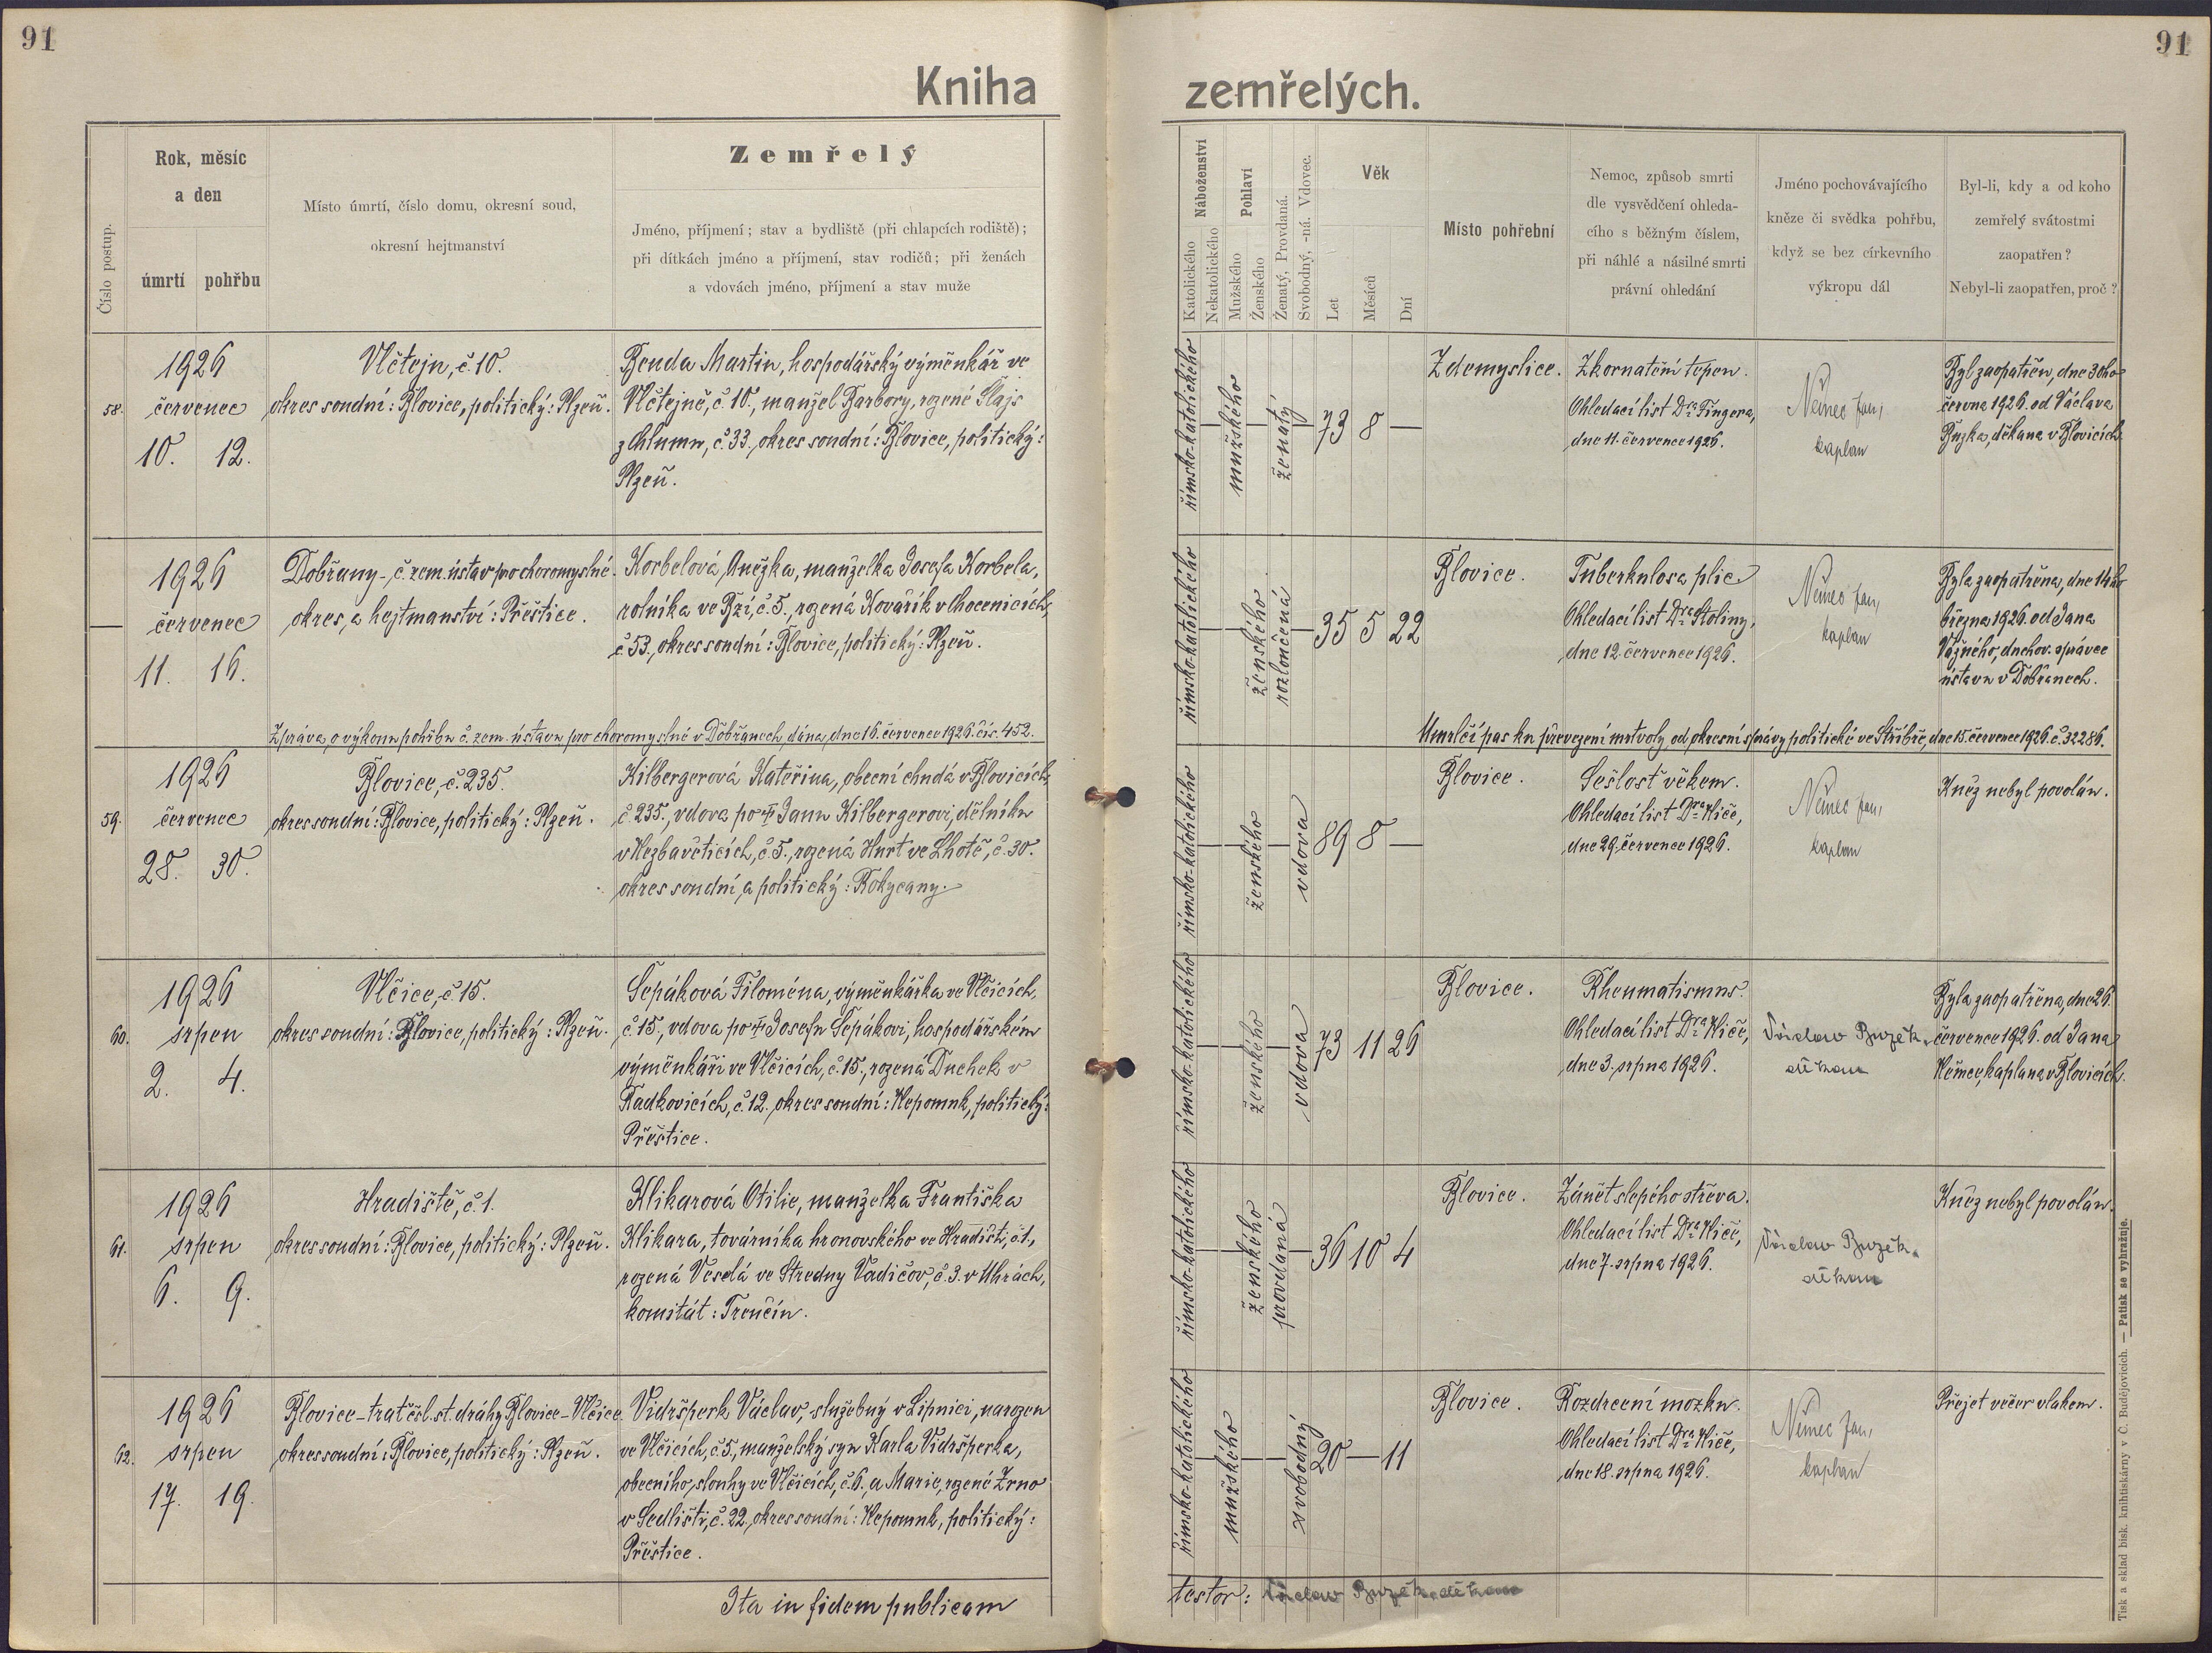 91
91
Kniha zemřelých.
Číslo postup.
Rok, měsíc
a den
úmrtí
pohřbu
Místo úmrtí, číslo domu, okresní soud,
okresní hejtmanství
Zemřelý
Jméno, příjmení; stav a bydliště (při chlapcích rodiště);
při dítkách jméno a příjmení, stav rodičů; při ženách
a vdovách jméno, příjmení a stav muže
Náboženství
Katolického
Nekatolického
Pohlaví
Mužského
Ženského
Ženatý, Provdaná.
Svobodný, -ná. Vdovec.
Věk
Let
Měsíců
Dní
Místo pohřební
Nemoc, způsob smrti
dle vysvědčení ohleda-
cího s běžným číslem,
při náhlé a násilné smrti
právní ohledání
Jméno pochovávajícího
kněze či svědka pohřbu,
když se bez církevního
výkropu dál
Byl-li, kdy a od koho
zemřelý svátostmi
zaopatřen?
Nebyl-li zaopatřen, proč?
58.
1926
červenec
10. 12.
Vlčtejn, č. 10.
okres soudní: Blovice, politický: Plzeň.
Benda Martin, hospodářský výměnkář ve
Vlčtejně, č. 10., manžel Barbory, rozené Šlajs
z Chlumu, č. 33, okres soudní: Blovice, politický:
Plzeň.
římsko-katolického
mužského
ženatý
73 8 —
Zdemyslice.
Zkornatění tepen.
Ohledací list Dra Fingera,
dne 11. července 1926.
Němec Jan,
kaplan
Byl zaopatřen, dne 30ho
června 1926. od Václava
Buzka, děkana v Blovicích.
—
1926
červenec
11. 16.
Dobřany - č. zem. ústav pro choromyslné.
okres, a hejtmanství: Přeštice.
Korbelová Anežka, manželka Josefa Korbela,
rolníka ve Bzí, č. 5., rozená Kovářík v Chocenicích,
č. 53., okres soudní: Blovice, politický: Plzeň.
římsko-katolického
ženského
rozloučená
35 5 22
Blovice.
Tuberkulosa plic
Ohledací list Dra Stoliny,
dne 12. července 1926.
Němec Jan,
kaplan
Byla zaopatřena, dne 14ho
března 1926. od Jana
Vážného, duchov. správce
ústavu v Dobřanech.
Zpráva, o výkonu pohřbu č. zem. ústavu pro choromyslné v Dobřanech, dána, dne 16. července 1926. čís. 452.
Umrlčí pas ku převezení mrtvoly od okresní správy politické ve Stříbře, dne 15. července 1926. č. 32286.
59.
1926
červenec
28. 30.
Blovice, č. 235.
okres soudní: Blovice, politický: Plzeň.
Kilbergerová Kateřina, obecní chudá v Blovicích,
č. 235., vdova po † Janu Kilbergerovi, dělníku
v Nezbavěticích, č. 5., rozená Hurt ve Lhotě, č. 30.
okres soudní, a politický: Rokycany.
římsko-katolického
ženského
vdova
89 8 —
Blovice.
Sešlost věkem.
Ohledací list Dra Niče,
dne 29. července 1926.
Němec Jan,
kaplan
Kněz nebyl povolán.
60.
1926
srpen
2. 4.
Vlčice, č. 15.
okres soudní: Blovice, politický: Plzeň.
Šepáková Filoména, výměnkářka ve Vlčicích,
č. 15, vdova po † Josefu Šepákovi, hospodářském
výměnkáři ve Vlčicích, č. 15., rozená Duchek v
Radkovicích, č. 12. okres soudní: Nepomuk, politický:
Přeštice.
římsko-katolického
ženského
vdova
73 11 26
Blovice.
Rheumatismus.
Ohledací list Dra Niče,
dne 3. srpna 1926.
Václav Buzek,
děkan
Byla zaopatřena, dne 26.
července 1926. od Jana
Němce, kaplana v Blovicích.
61.
1926
srpen
6. 9.
Hradiště, č. 1.
okres soudní: Blovice, politický: Plzeň.
Klikarová Otilie, manželka Františka
Klikara, továrníka hronovského ve Hradišti, č. 1,
rozená Veselá ve Stredny Vadičov, č. 3. v Uhrách,
komitát: Trenčín.
římsko-katolického
ženského
provdaná
36 10 4
Blovice.
Zánět slepého střeva.
Ohledací list Dra Niče,
dne 7. srpna 1926.
Václav Buzek,
děkan
Kněz nebyl povolán.
62.
1926
srpen
17. 19.
Blovice - trať čsl. st. dráhy Blovice - Vlčice
okres soudní: Blovice, politický: Plzeň.
Vidršperk Václav, služebný v Lipnici, narozen
ve Vlčicích, č. 5, manželský syn Karla Vidršperka,
obecního, slouhy ve Vlčicích, č. 6., a Marie, rozené Zrno
v Sedlišti, č. 22., okres soudní: Nepomuk, politický:
Přeštice.
římsko-katolického
mužského
svobodný
20 — 11
Blovice.
Rozdrcení mozku.
Ohledací list Dra Niče,
dne 18. srpna 1926.
Němec Jan,
kaplan
Přejet večer vlakem.
Ita in fidem publicam
testor: Václav Buzek, děkan
Tisk a sklad bisk. knihtiskárny v Č. Budějovicích. — Patisk se vyhražuje.